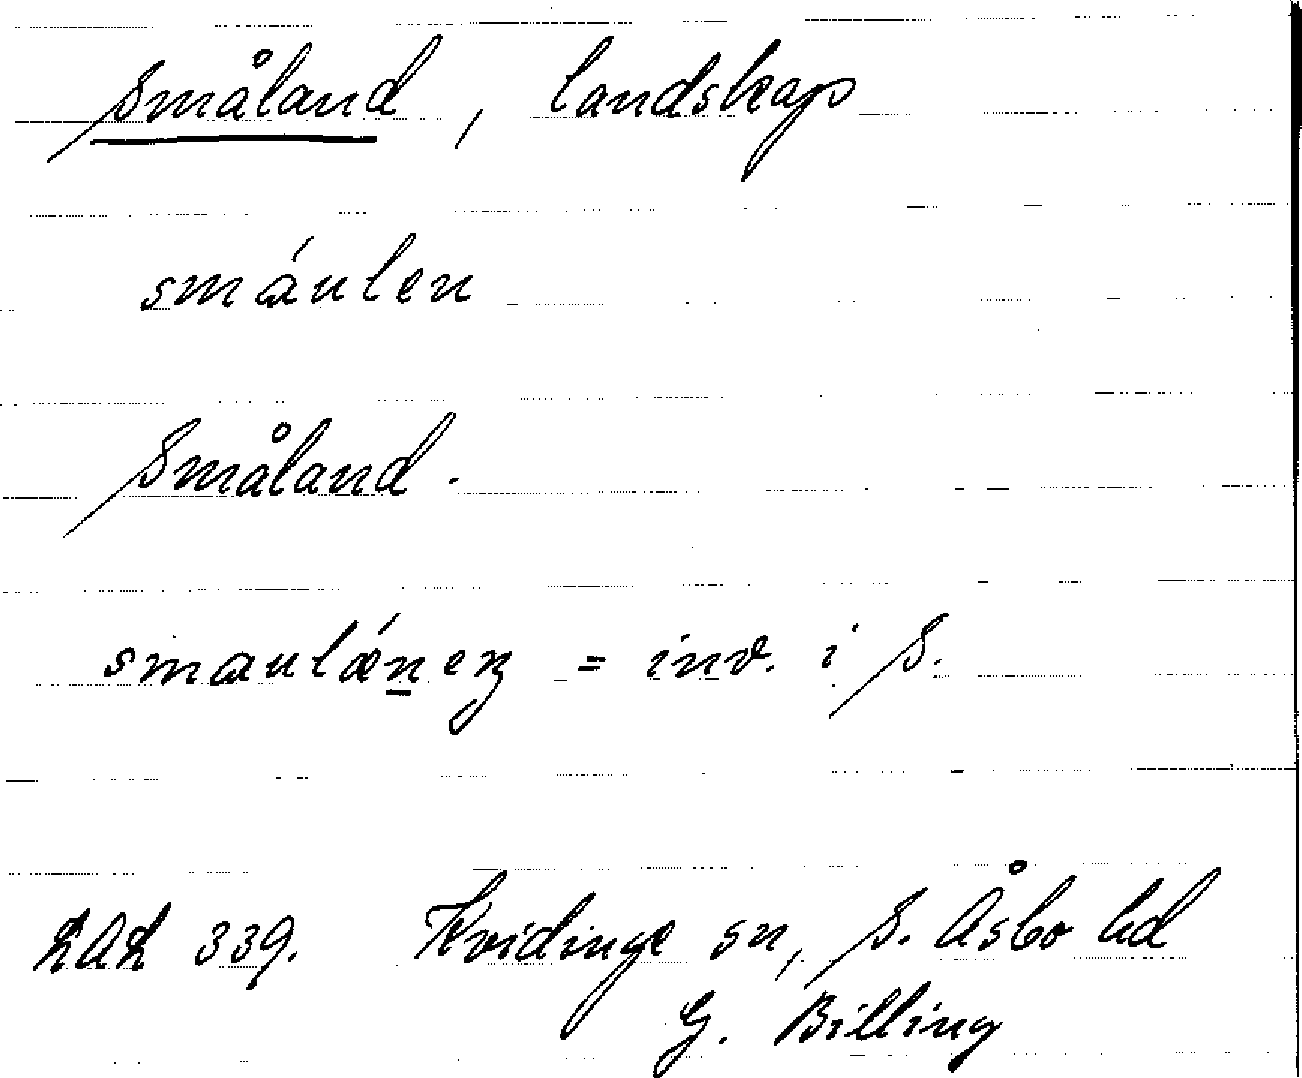 Småland, landskap
smáulen
Småland.
smaulǽneʀ = inv. i S.
LAL 339. Kvidinge sn, S. Åsbo hd
G. Billing